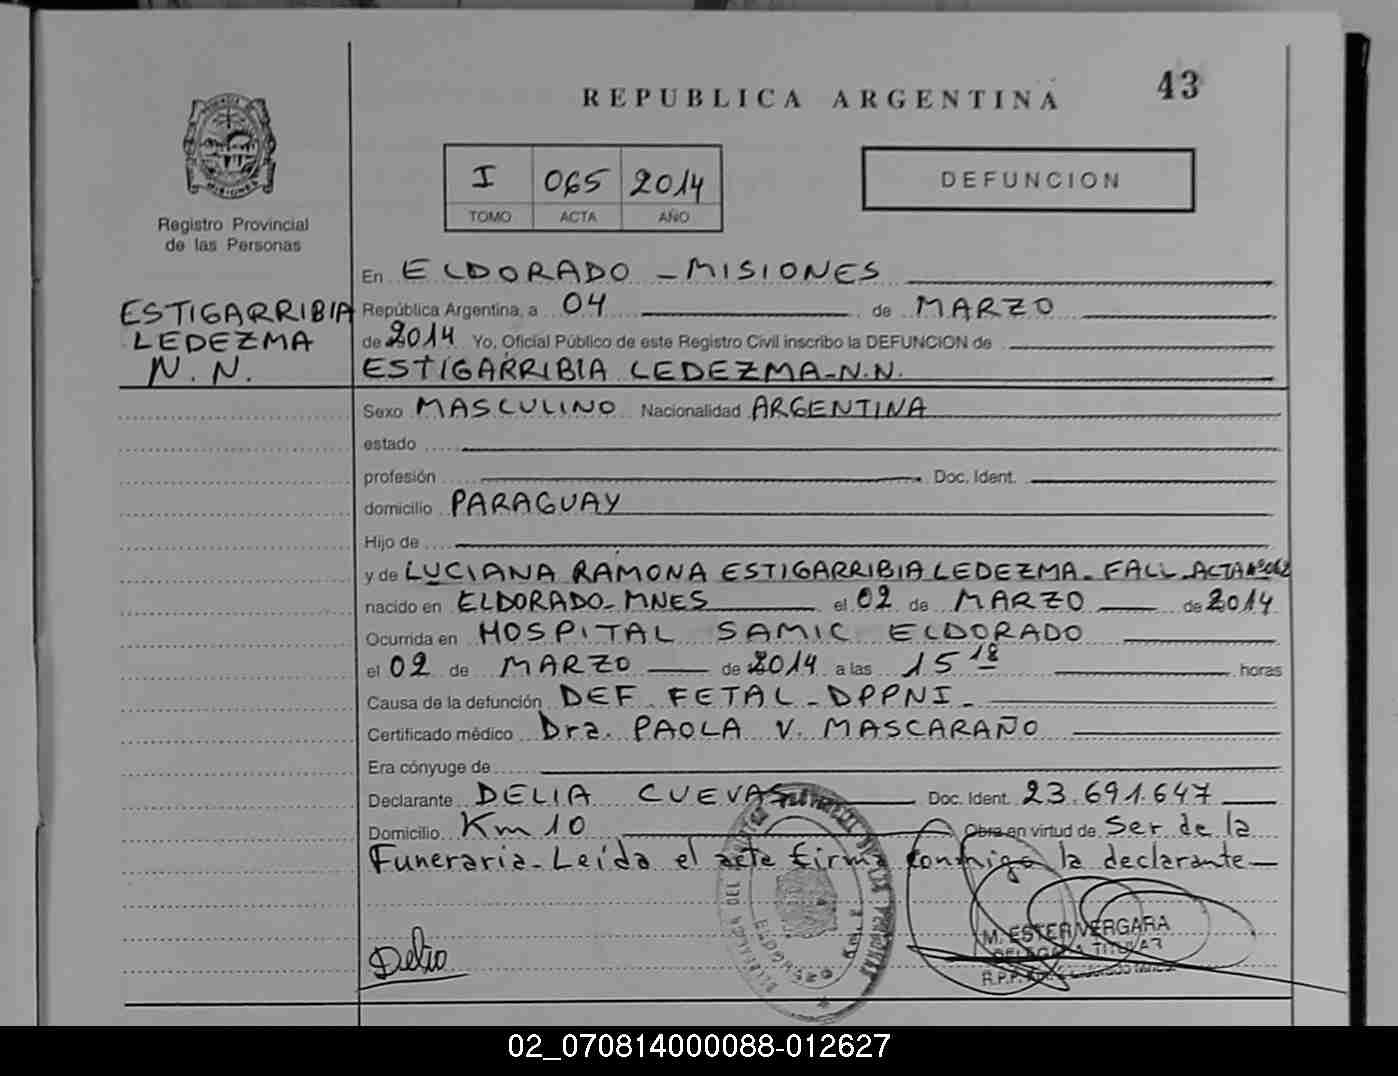 43
REPUBLICA ARGENTINA
I 065 2014
TOMO ACTA AÑO
DEFUNCION
Registro Provincial
de las Personas
ESTIGARRIBIA
LEDEZMA
N.N.
En ELDORADO - MISIONES
República Argentina, a 04 de MARZO
de 2014 Yo, Oficial Público de este Registro Civil inscribo la DEFUNCION de
ESTIGARRIBIA LEDEZMA - N.N.
Sexo MASCULINO Nacionalidad ARGENTINA
estado
profesión Doc. Ident.
domicilio PARAGUAY
Hijo de
y de LUCIANA RAMONA ESTIGARRIBIA LEDEZMA - FALL - ACTA Nº 062
nacido en ELDORADO - MNES el 02 de MARZO de 2014
Ocurrida en HOSPITAL SAMIC ELDORADO
el 02 de MARZO de 2014 a las 15 18 horas
Causa de la defunción DEF. FETAL - DPPNI -
Certificado médico Dra. PAOLA V. MASCARAÑO
Era cónyuge de
Declarante DELIA CUEVAS Doc. Ident. 23.691.647
Domicilio Km 10 Obra en virtud de Ser de la
Funeraria - Leída el acta firma conmigo la declarante
Delia
M. ESTER VERGARA
DELEGADA TITULAR
R.P.P.
ELDORADO
02_070814000088-012627